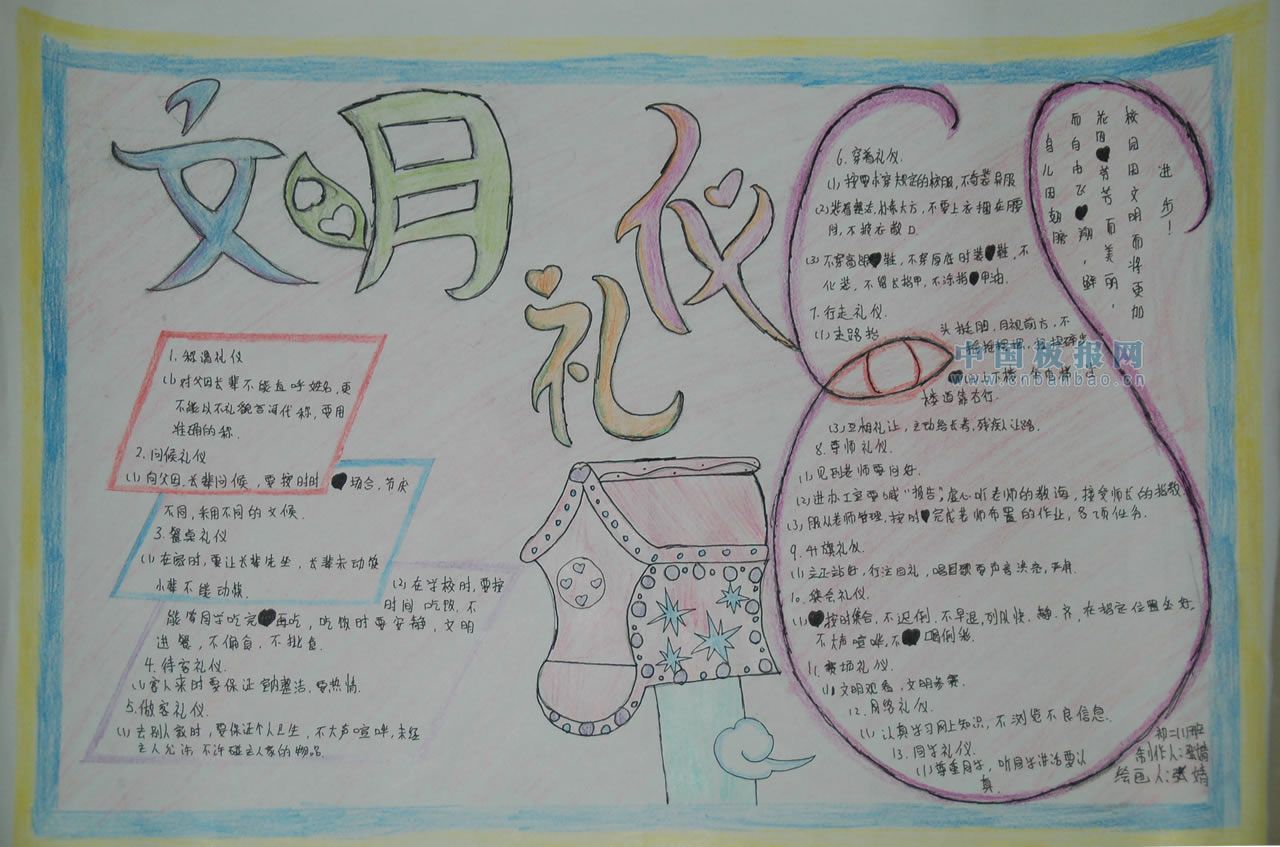 文明
礼仪
1. 称谓礼仪
(1) 对父母长辈不能直呼姓名,更
不能以不礼貌言词代称,要用
准确的称.
2. 问候礼仪
(1) 向父母、长辈问候,要按时时 场合,节庆
不同,采用不同的文候.
3. 餐桌礼仪
(1) 在家时,要让长辈先坐,长辈未动筷
小辈不能动筷.
(2) 在学校时,要按
时间吃饭,不
能等同学吃完 再吃,吃饭时要安静,文明
进餐,不偏食,不挑食.
4. 待客礼仪.
(1) 客人来时要保证 整洁,要热情.
5. 做客礼仪.
(1) 去别人家时,要保证个人卫生,不大声喧哗,未经
主人允许,不许碰主人家的物品.
6. 穿着礼仪.
(1) 按要求穿规定的校服,不奇装异服
(2) 装着整洁,朴素大方,不要上衣捆在腰
间,不披衣散口.
(3) 不穿高跟 鞋,不穿厚底时装 鞋,不
化装,不留长指甲,不涂指 甲油.
7. 行走礼仪.
(1) 走路抬 头挺胸,目视前方,不
楼道靠右行.
(3) 互相礼让,主动给长者、残疾人让路.
8. 尊师礼仪.
(1) 见到老师要问好.
(2) 进办公室要喊“报告”,虚心听老师的教诲,接受师长的指教.
(3) 服从老师管理,按时 完成老师布置的作业,各项任务.
9. 升旗礼仪.
(1) 立正站好,行注目礼,唱国歌要声音洪亮,严肃.
10. 集会礼仪.
(1) 按时集合,不迟到,不早退,列队快、静、齐,在指定位置坐好.
不大声喧哗,不 喝倒彩.
11. 赛场礼仪.
(1) 文明观看,文明参赛.
12. 网络礼仪.
(1) 认真学习网上知识,不浏览不良信息.
13. 同学礼仪.
(1) 尊重同学,听同学讲话要认
真.
校园因文明而将更加
进步!
花因 芳芳而美丽,
而自由飞 翔,
鸟儿因翅膀
初二(1)班
制作人:张婧
绘画人:张婧
中国板报网
www.cnbanbao.cn